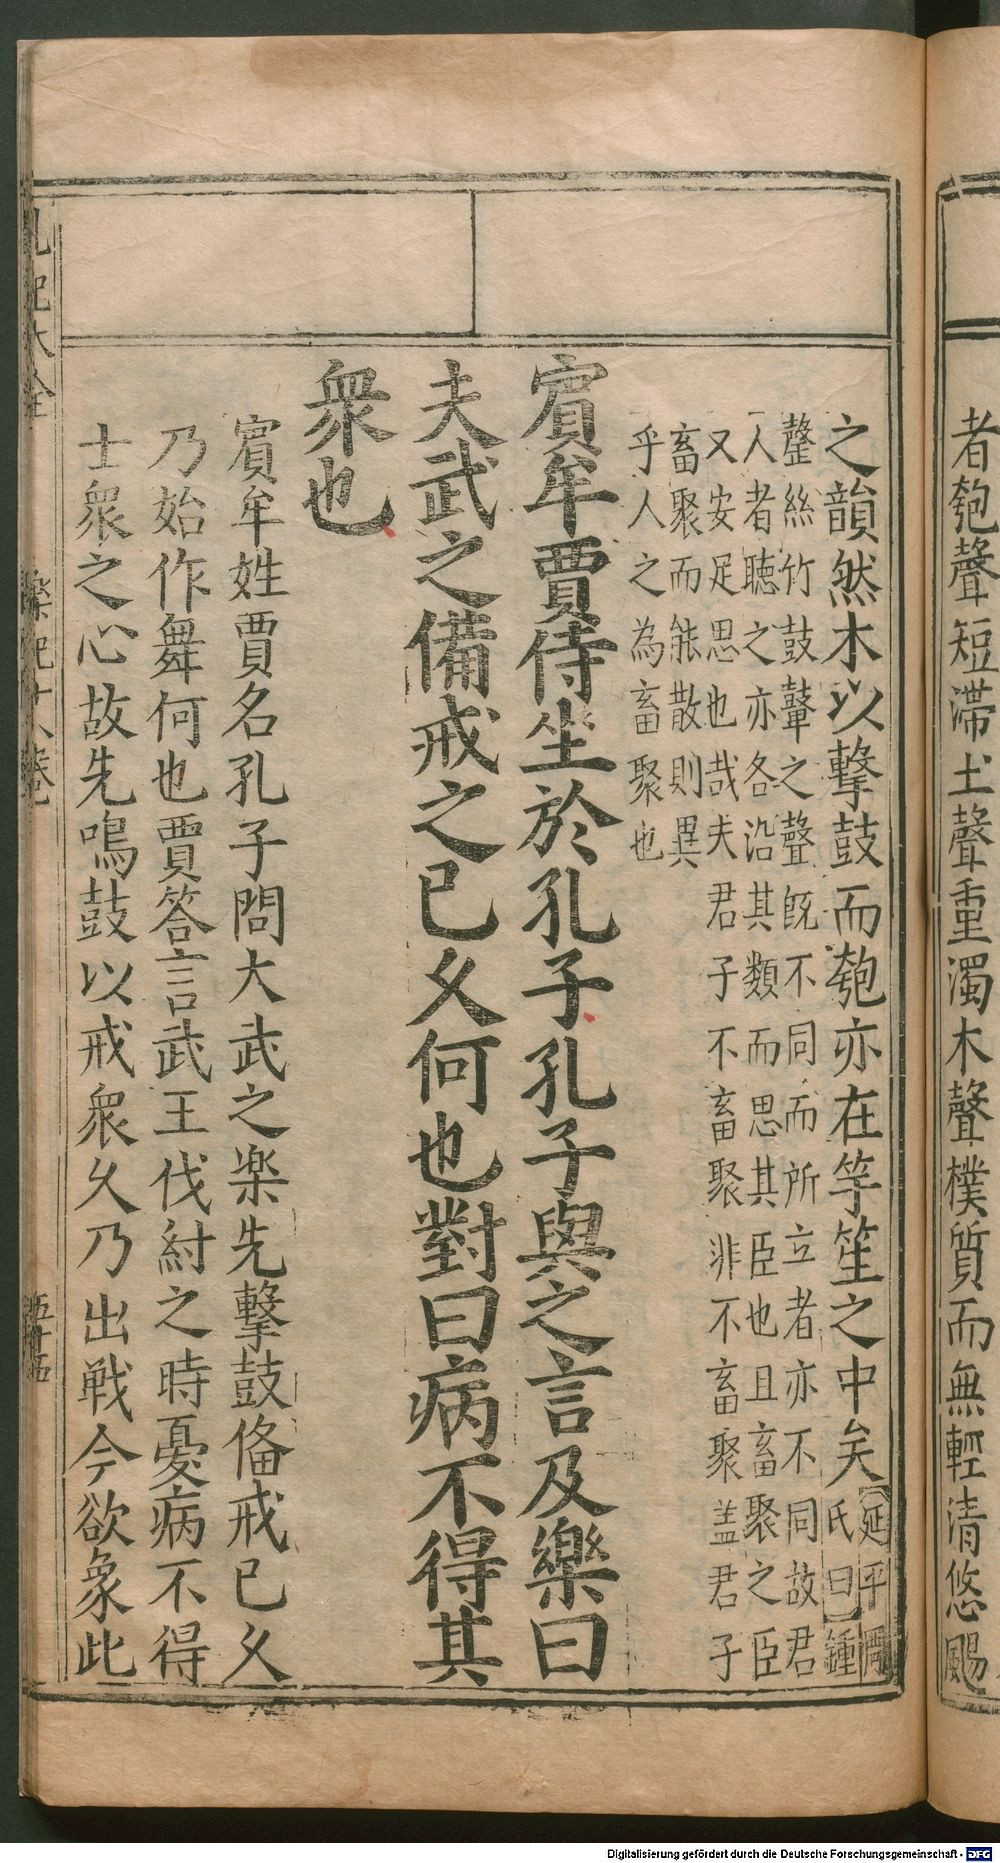 者匏聲短滯土聲重濁木聲樸質而無輕清悠颺
之韻然木以擊鼓而匏亦在竽笙之中矣【延平周氏曰】鍾
罄絲竹鼓鼙之聲旣不同而所立者亦不同故君
人者聽之亦各沿其類而思其臣也且畜聚之臣
又安足思也哉夫君子不畜聚非不畜聚盖君子
畜聚而能散則異
乎人之為畜聚也
賓牟賈侍坐於孔子孔子與之言及樂曰
夫武之備戒之已乆何也對曰病不得其
衆也
賓牟姓賈名孔子問大武之楽先擊鼓俻戒已乆
乃始作舞何也賈答言武王伐紂之時憂病不得
士衆之心故先鳴鼓以戒衆乆乃出戦今欲象此
記大全
樂記十八卷
五十五
Digitalisierung gefördert durch die Deutsche Forschungsgemeinschaft - DFG